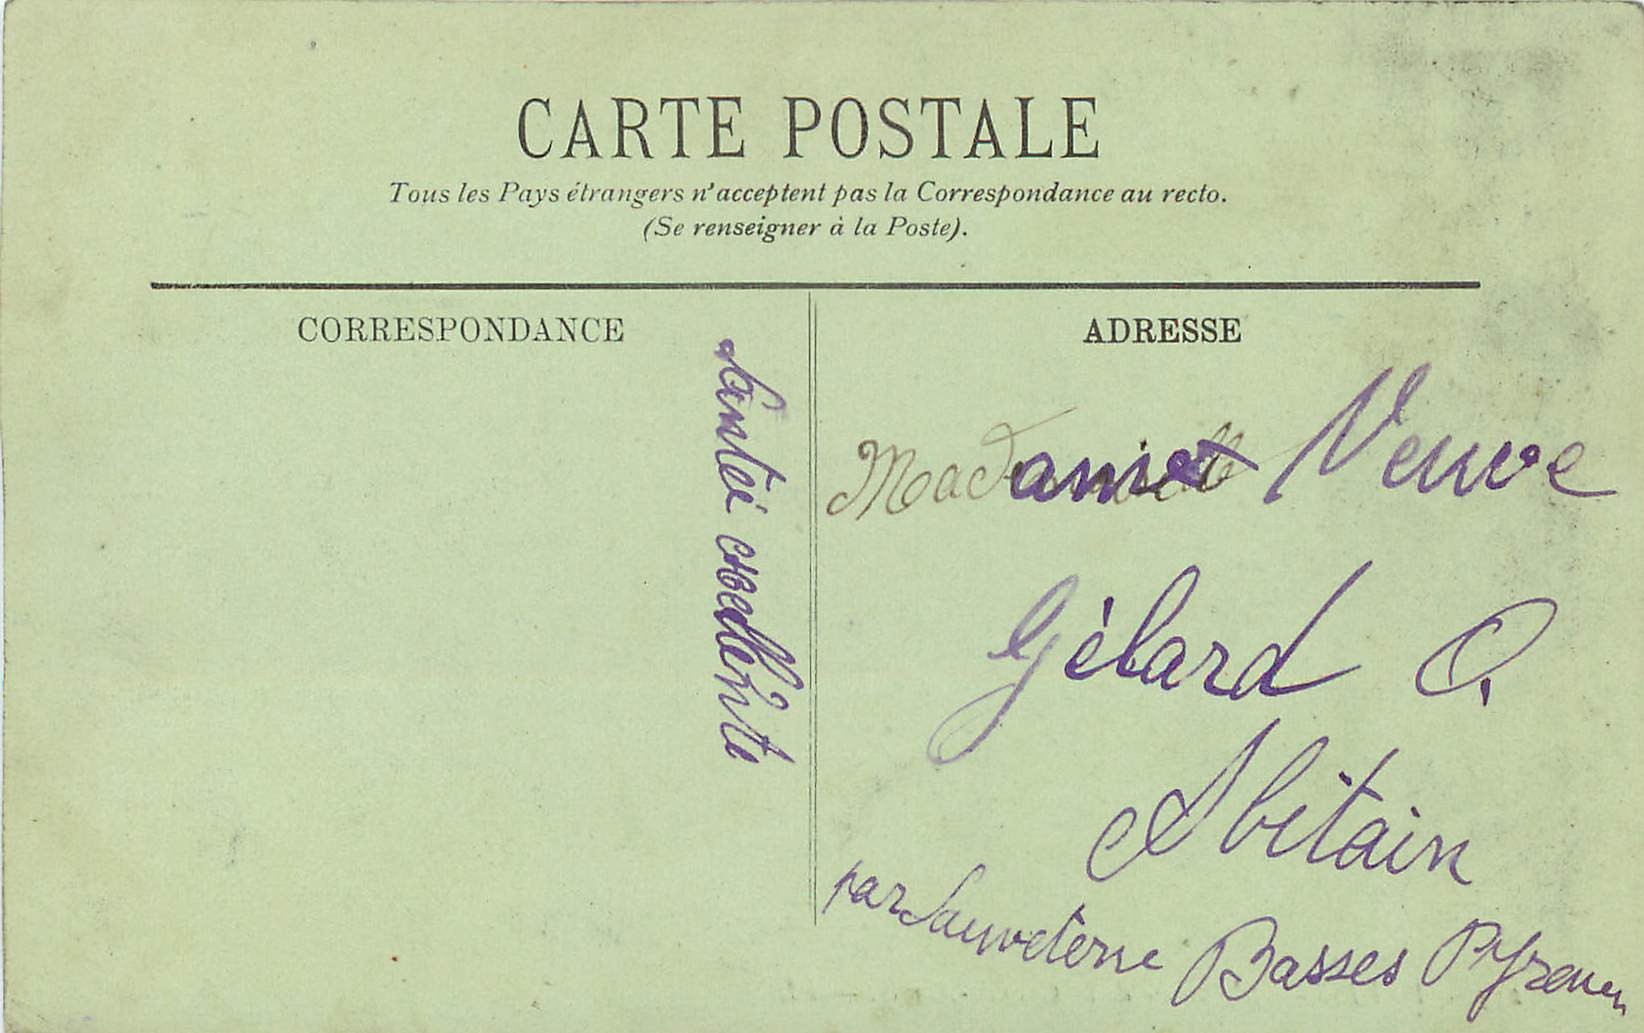 CARTE POSTALE
Tous les Pays étrangers n'acceptent pas la Correspondance au recto.
(Se renseigner à la Poste).
CORRESPONDANCE
Santé excellente
ADRESSE
Madame Veuve
Gélard O.
Abitain
par Sauveterre Basses Pyrenees